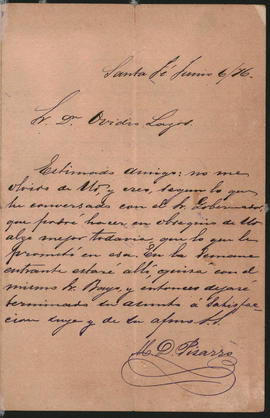 Santa Fé Junio 6/76
Sr. Dn. Ovidio Lagos.
Estimado amigo: no me
olvido de Vd, y creo, segun lo que
he conversado con el Sr. Gobernador,
que podré hacer en obsequio de Vd
algo mejor todavia, que lo que le
prometí en esa. En la semana
entrante estaré allí, quizá con el
mismo Sr. Bayo, y entonces dejaré
terminado su asunto á satisfac
cion suya y de su afmo. S.S.
M. D. Pizarro